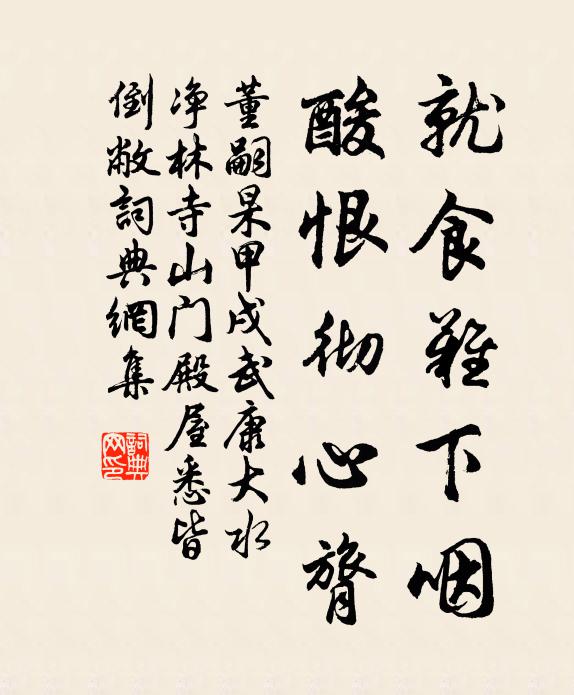 就食難下咽
酸恨彻心膂
董嗣杲甲戌武康大水
净林寺山门殿屋悉皆
倒敝詞典網集
詞典
网印